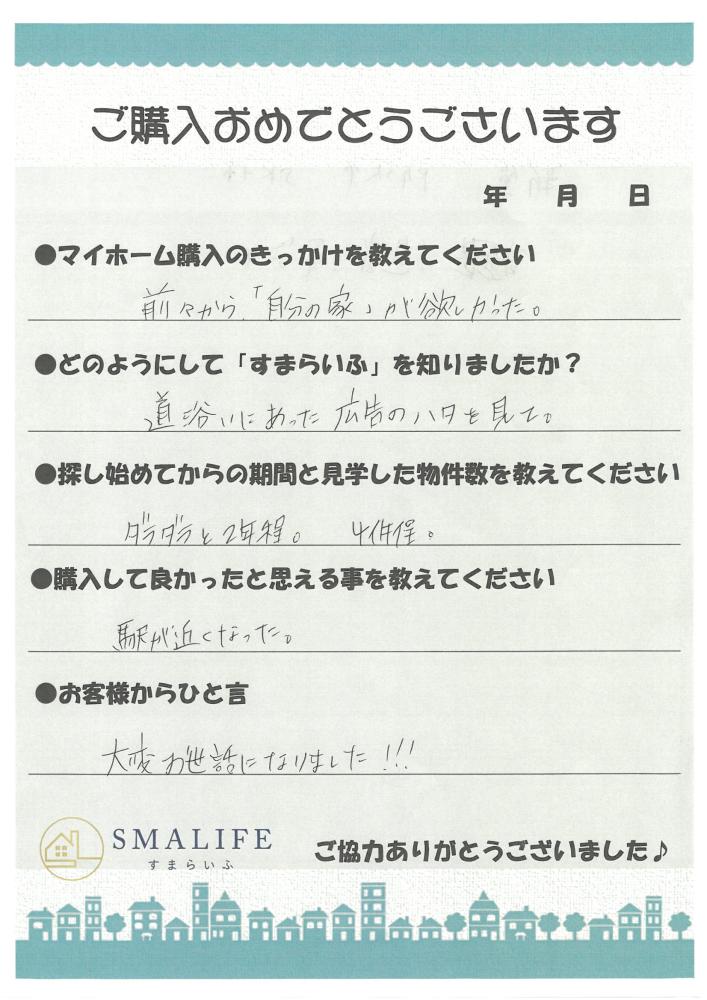 ご購入おめでとうございます
年 月 日
●マイホーム購入のきっかけを教えてください
前々から、「自分の家」が欲しかった。
●どのようにして「すまらいふ」を知りましたか？
道沿いにあった広告のハタを見て。
●探し始めてからの期間と見学した物件数を教えてください
ダラダラと2年程。 4件程。
●購入して良かったと思える事を教えてください
駅が近くなった。
●お客様からひと言
大変お世話になりました!!!
SMALIFE
すまらいふ
ご協力ありがとうございました♪